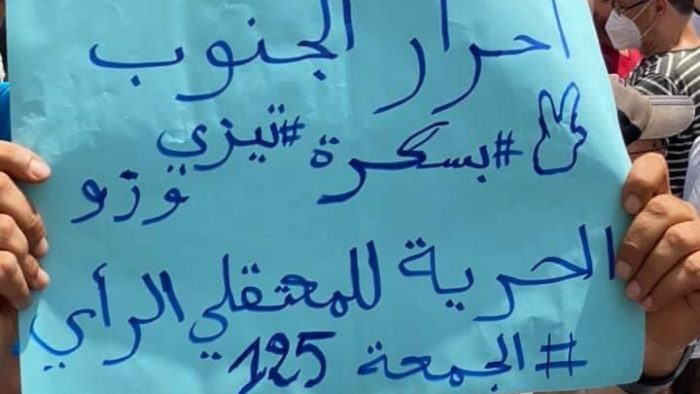 احرار الجنوب
#بسكرة #تيزي
وزو
الحرية للمعتقلي الرأي
#الجمعة 125